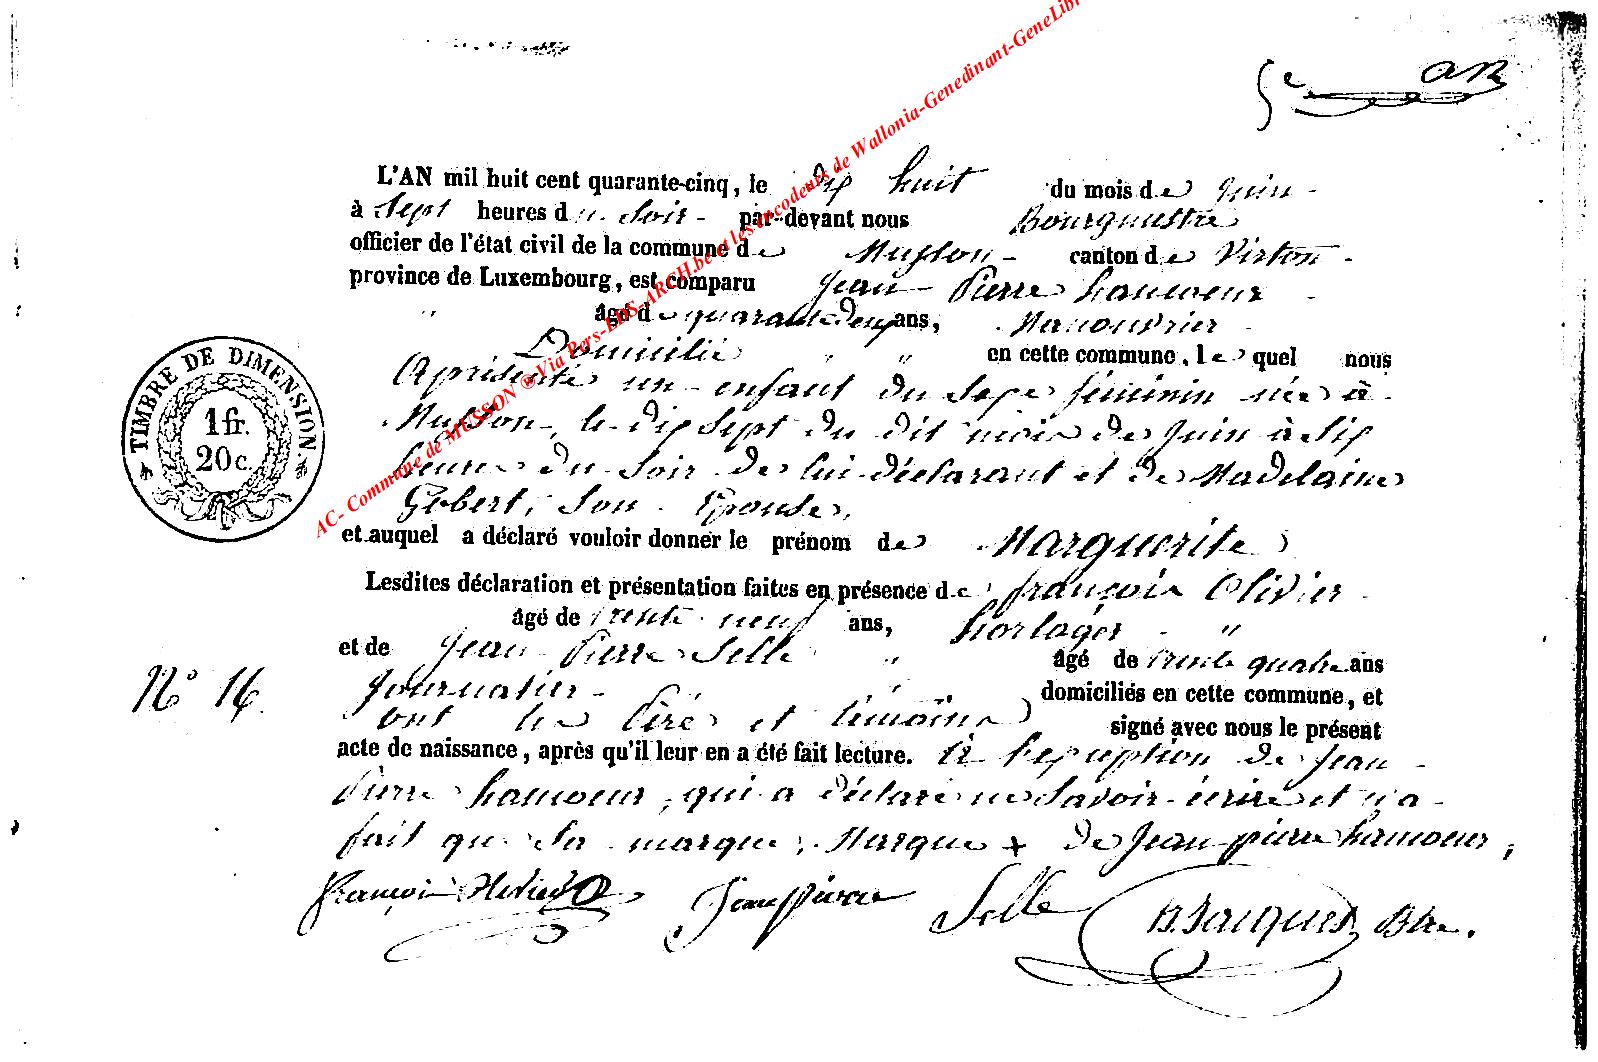 5e
L'AN mil huit cent quarante-cinq, le dix huit du mois de Juin
à Sept heures du Soir par-devant nous Bourgmestre
officier de l'état civil de la commune de Musson canton de Virton
province de Luxembourg, est comparu Jean Pierre hamoeur
âgé de quarante deux ans, Manouvrier
Domicilié en cette commune, lequel nous
A présenté un enfant du Sexe féminin née à
Musson, le dix Sept du dit mois de Juin à Six
heures du Soir de lui déclarant et de Madelaine
Gobert, Son Epouse,
et auquel a déclaré vouloir donner le prénom de Marguerite
Lesdites déclaration et présentation faites en présence de françois Olivier
âgé de trente neuf ans, horlager
et de Jean Pierre Selle âgé de trente quatre ans
Journalier domiciliés en cette commune, et
ont les Père et témoins signé avec nous le présent
acte de naissance, après qu'il leur en a été fait lecture. à l'exception de Jean
Pierre hamoeur, qui a déclaré ne Savoir écrire et n'a
fait que Sa marque, Marque + de Jean pierre hamoeur,
François Olivier Jean Pierre Selle B. Jacques Btre.
N° 16.
TIMBRE DE DIMENSION.
1 fr.
20 c.
AC- Commune de MUSSON ® Via Pers-LDS-ARCH.be et les encodeurs de Wallonia-Genedinant-GeneLibr